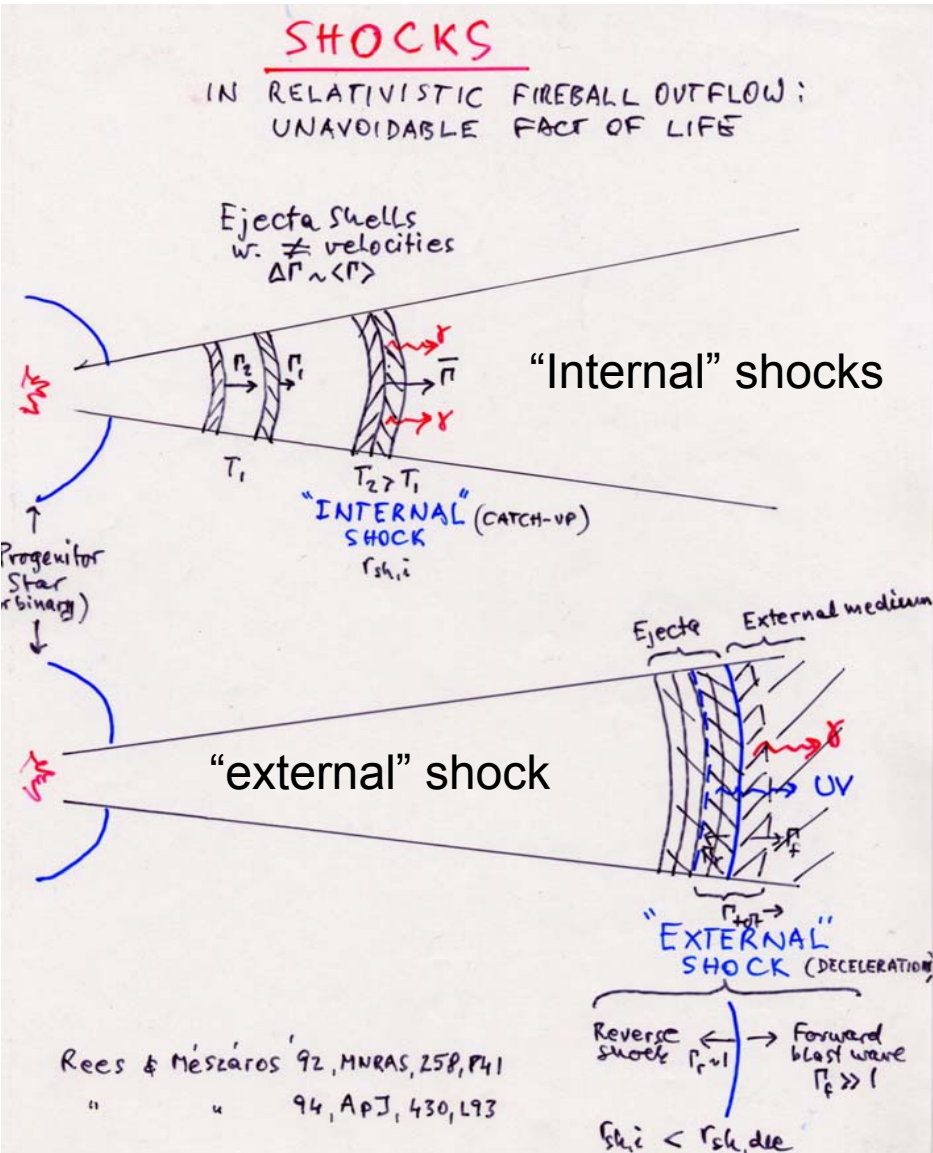 SHOCKS
IN RELATIVISTIC FIREBALL OUTFLOW:
UNAVOIDABLE FACT OF LIFE
Ejecta Shells
w. ≠ velocities
ΔΓ ~ <Γ>
Γ₂ Γ₁
γ
Γ̅
γ
“Internal” shocks
T₁
T₂ > T₁
"INTERNAL" (CATCH-UP)
SHOCK
r_sh,i
Progenitor
Star
r binary)
Ejecta
External medium
“external” shock
γ
UV
Γ_r
Γ_f
Γ_tot →
"EXTERNAL"
SHOCK (DECELERATION)
Reverse ← → Forward
shock Γ_r~1 blast wave
Γ_f >> 1
Rees & Mészáros '92, MNRAS, 258, P41
" " 94, ApJ, 430, L93
r_sh,i < r_sh,dec